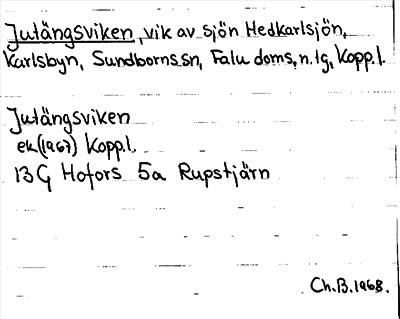 Jutängsviken, vik av sjön Hedkarlsjön,
Karlsbyn, Sundborns sn, Falu doms. n. tg, Kopp. l.
Jutängsviken
ek (1967) Kopp. l.
13G Hofors 5a Rupstjärn
Ch. B. 1968.